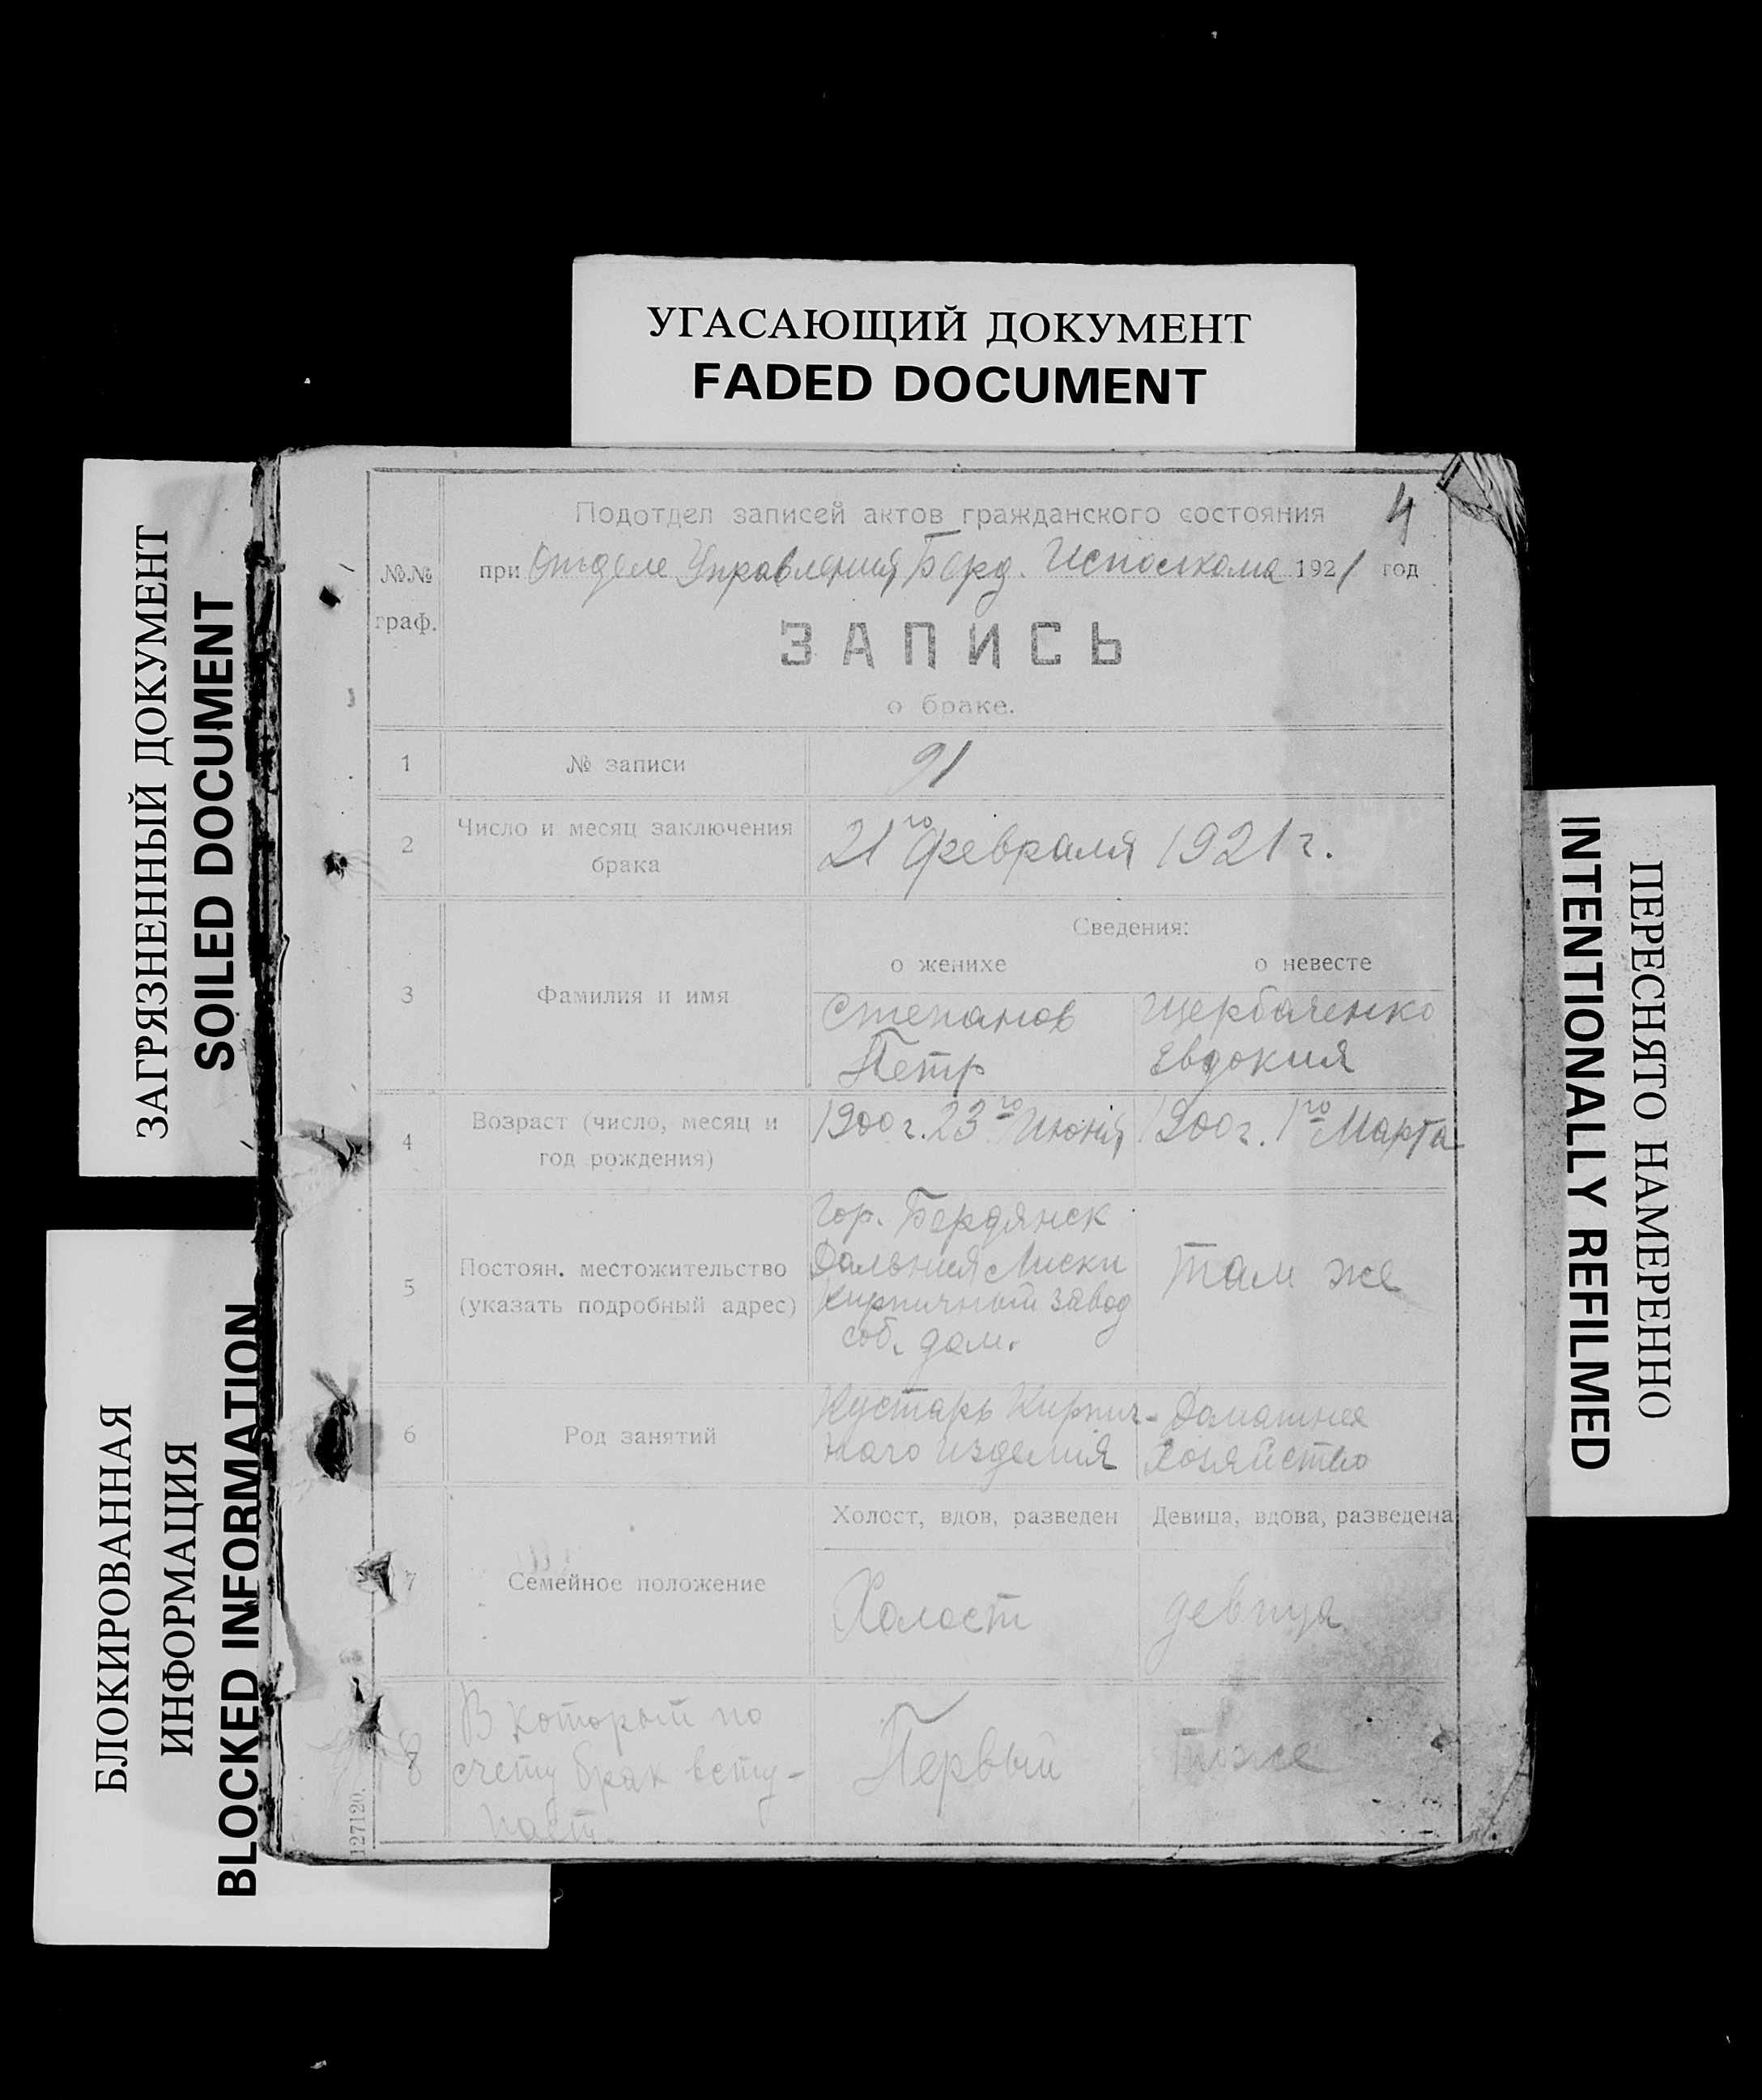 УГАСАЮЩИЙ ДОКУМЕНТ
FADED DOCUMENT
ЗАГРЯЗНЕННЫЙ ДОКУМЕНТ
SOILED DOCUMENT
БЛОКИРОВАННАЯ
ИНФОРМАЦИЯ
BLOCKED INFORMATION
ПЕРЕСНЯТО НАМЕРЕННО
INTENTIONALLY REFILMED
4
Подотдел записей актов гражданского состояния
№№
граф.
при Отделе Управления Берд. Исполкома 1921 год
ЗАПИСЬ
о браке.
1
№ записи
91
2
Число и месяц заключения
брака
21го февраля 1921 г.
3
Фамилия и имя
Сведения:
о женихе
о невесте
Степанов
Петр
Щербаченко
Евдокия
4
Возраст (число, месяц и
год рождения)
1900 г. 23го Июня
1900 г. 1го Марта
5
Постоян. местожительство
(указать подробный адрес)
Гор. Бердянск
Дальния Лиски
Кирпичный завод
соб. дом.
Там же
6
Род занятий
Кустарь Кирпич-
наго изделия
Домашнее
Хозяйство
7
Семейное положение
Холост, вдов, разведен
Девица, вдова, разведена
Холост
девица
8
В который по
счету брак всту-
пает.
Первый
тоже
127120.